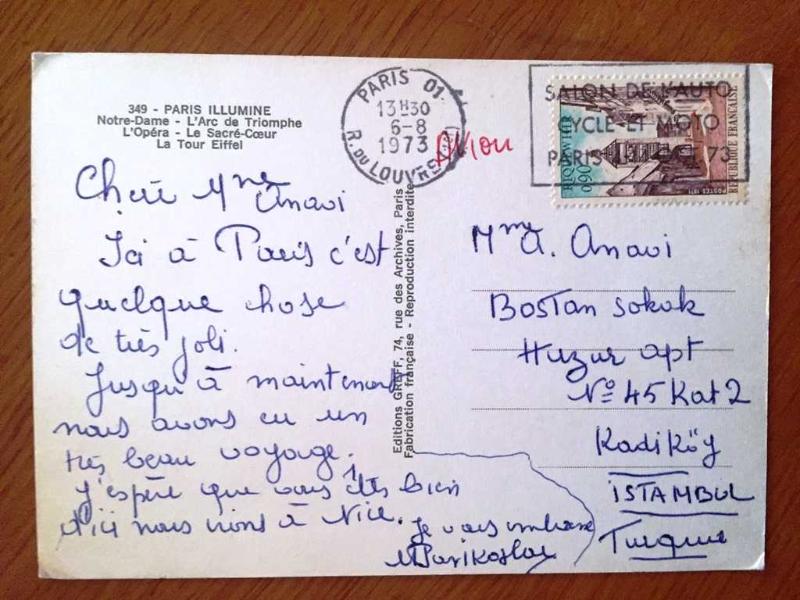 349 - PARIS ILLUMINE
Notre-Dame - L'Arc de Triomphe
L'Opéra - Le Sacré-Cœur
La Tour Eiffel
PARIS 01
13H30
6-8
1973
R. DU LOUVRE
Avion
SALON DE L'AUTO
CYCLE ET MOTO
PARIS OCT 73
RIQUEWIHR
0,90
REPUBLIQUE FRANÇAISE
POSTES 1971
Chère Mme Anavi
Ici à Paris c'est
quelque chose
de très joli.
Jusqu'à maintenant
nous avons eu un
très beau voyage.
J'espère que vous êtes bien
d'ici nous irons à Nice.
Je vous embrasse
Editions GREFF, 74, rue des Archives, Paris
Fabrication française - Reproduction interdite
Mme A. Anavi
Bostan sokak
Huzur apt
No 45 Kat 2
Kadiköy
İSTAMBUL
Turquie